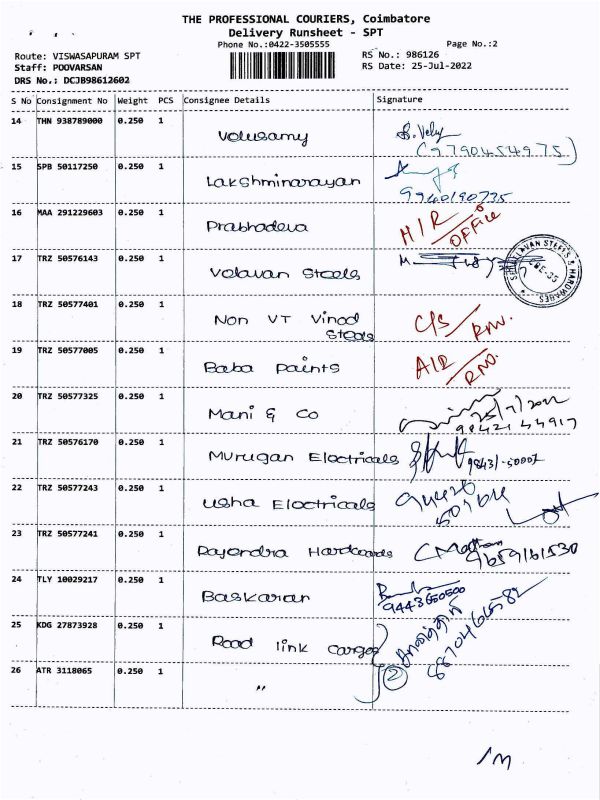 THE PROFESSIONAL COURIERS, Coimbatore
Delivery Runsheet - SPT
Phone No.:0422-3505555
Page No.:2
Route: VISWASAPURAM SPT
RS No.: 986126
Staff: POOVARSAN
RS Date: 25-Jul-2022
DRS No.: DCJB98612602
S No Consignment No Weight PCS Consignee Details Signature
14 THN 938789000 0.250 1
Velusamy
(9790454975)
15 SPB 50117250 0.250 1
Lakshminarayan
9940190735
16 MAA 291229603 0.250 1
Prabhadeva
H/R
OFFICE
17 TRZ 50576143 0.250 1
Velavan Steels
18 TRZ 50577401 0.250 1
Non VT Vinod
Steels
C/S
19 TRZ 50577005 0.250 1
Baba paints
A/R
20 TRZ 50577325 0.250 1
Mani & Co
25/7/2022
9842144917
21 TRZ 50576170 0.250 1
Murugan Electricals
22 TRZ 50577243 0.250 1
Usha Electricals
23 TRZ 50577241 0.250 1
Rajendra Hardwares
9659161530
24 TLY 10029217 0.250 1
Baskaran
9443650500
25 KDG 27873928 0.250 1
Road link cargo
26 ATR 3118065 0.250 1
"
2